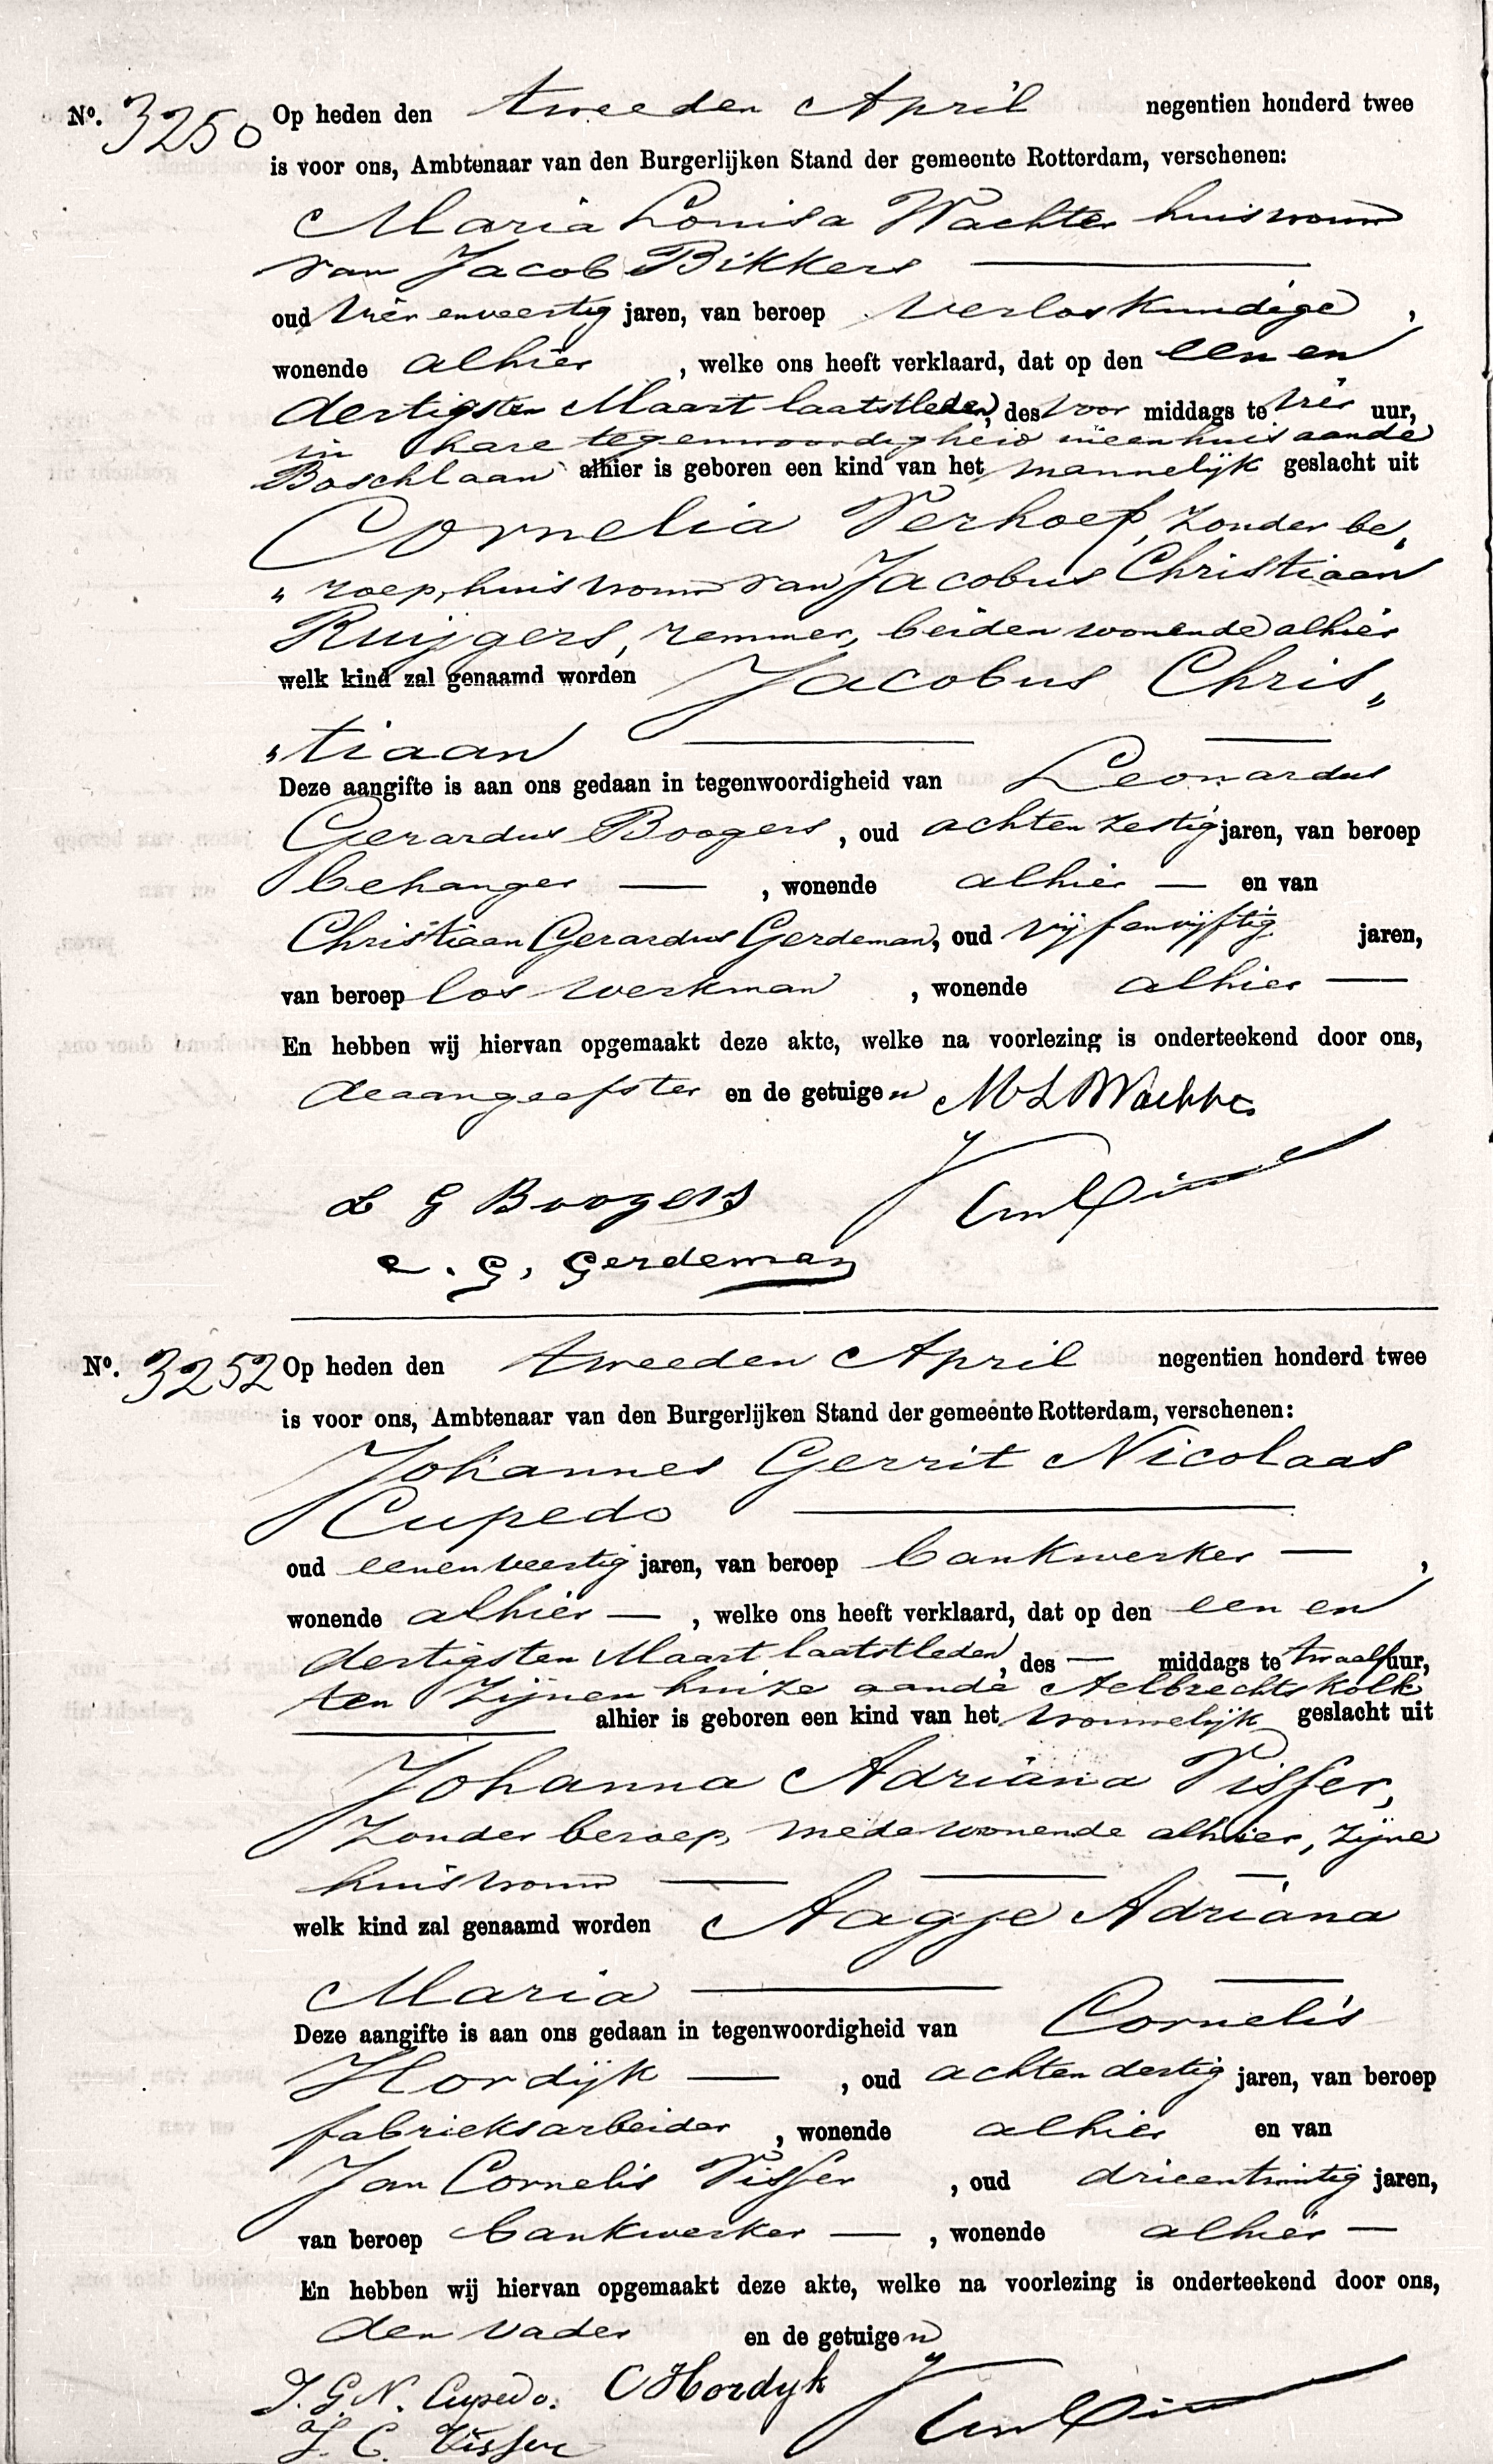 No. 3250 Op heden den tweeden April negentien honderd twee
is voor ons, Ambtenaar van den Burgerlijken Stand der gemeente Rotterdam, verschenen:
Maria Louisa Wachter huisvrouw
van Jacob Bikkers
oud vier en veertig jaren, van beroep verloskundige,
wonende alhier, welke ons heeft verklaard, dat op den een en
dertigsten Maart laatstleden, des voor middags te vier uur,
in hare tegenwoordigheid in een huis aan de
Boschlaan alhier is geboren een kind van het mannelijk geslacht uit
Cornelia Verhoef, zonder be„
„roep, huisvrouw van Jacobus Christiaan
Ruijgers, remmer, beiden wonende alhier
welk kind zal genaamd worden Jacobus Chris„
„tiaan
Deze aangifte is aan ons gedaan in tegenwoordigheid van Leonardus
Gerardus Boogers, oud acht en zestig jaren, van beroep
behanger, wonende alhier en van
Christiaan Gerardus Gerdeman, oud vijf en vijftig jaren,
van beroep los werkman, wonende alhier
En hebben wij hiervan opgemaakt deze akte, welke na voorlezing is onderteekend door ons,
de aangeefster en de getuigen M L Wachter
L G Boogers
C. G. Gerdeman
No. 3252 Op heden den tweeden April negentien honderd twee
is voor ons, Ambtenaar van den Burgerlijken Stand der gemeente Rotterdam, verschenen:
Johannes Gerrit Nicolaas
Cupedo
oud een en veertig jaren, van beroep bankwerker,
wonende alhier, welke ons heeft verklaard, dat op den een en
dertigsten Maart laatstleden, des middags te twaalf uur,
ten zijnen huize aan de Aelbrechtskolk
alhier is geboren een kind van het vrouwelijk geslacht uit
Johanna Adriana Visser,
zonder beroep, mede wonende alhier, zijne
huisvrouw
welk kind zal genaamd worden Aagje Adriana
Maria
Deze aangifte is aan ons gedaan in tegenwoordigheid van Cornelis
Hordijk, oud acht en dertig jaren, van beroep
fabrieksarbeider, wonende alhier en van
Jan Cornelis Visser, oud drie en twintig jaren,
van beroep bankwerker, wonende alhier
En hebben wij hiervan opgemaakt deze akte, welke na voorlezing is onderteekend door ons,
den vader en de getuigen
J. G. N. Cupedo. C Hordyk
J. C. Visser